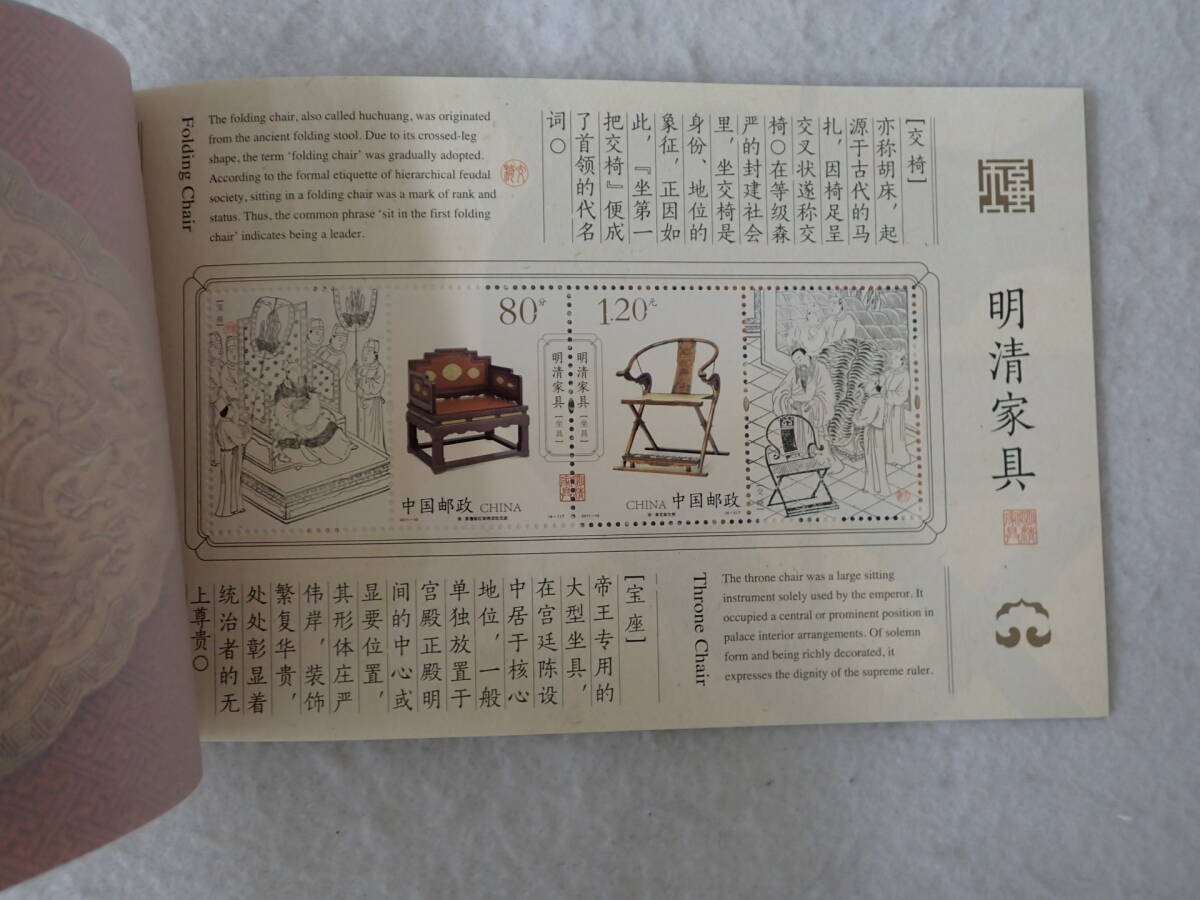 Folding Chair
The folding chair, also called huchuang, was originated
from the ancient folding stool. Due to its crossed-leg
shape, the term ‘folding chair’ was gradually adopted.
According to the formal etiquette of hierarchical feudal
society, sitting in a folding chair was a mark of rank and
status. Thus, the common phrase ‘sit in the first folding
chair’ indicates being a leader.
[交椅]
亦称胡床，起
源于古代的马
扎，因椅足呈
交叉状遂称交
椅。在等级森
严的封建社会
里，坐交椅是
身份、地位的
象征，正因如
此，『坐第一
把交椅』便成
了首领的代名
词。
明清家具
80分
1.20元
明清家具[坐具]
明清家具[坐具]
中国邮政 CHINA
CHINA 中国邮政
[宝座]
帝王专用的
大型坐具，
在宫廷陈设
中居于核心
地位，一般
单独放置于
宫殿正殿明
间的中心或
显要位置，
其形体庄严
伟岸，装饰
繁复华贵，
处处彰显着
统治者的无
上尊贵。
Throne Chair
The throne chair was a large sitting
instrument solely used by the emperor. It
occupied a central or prominent position in
palace interior arrangements. Of solemn
form and being richly decorated, it
expresses the dignity of the supreme ruler.